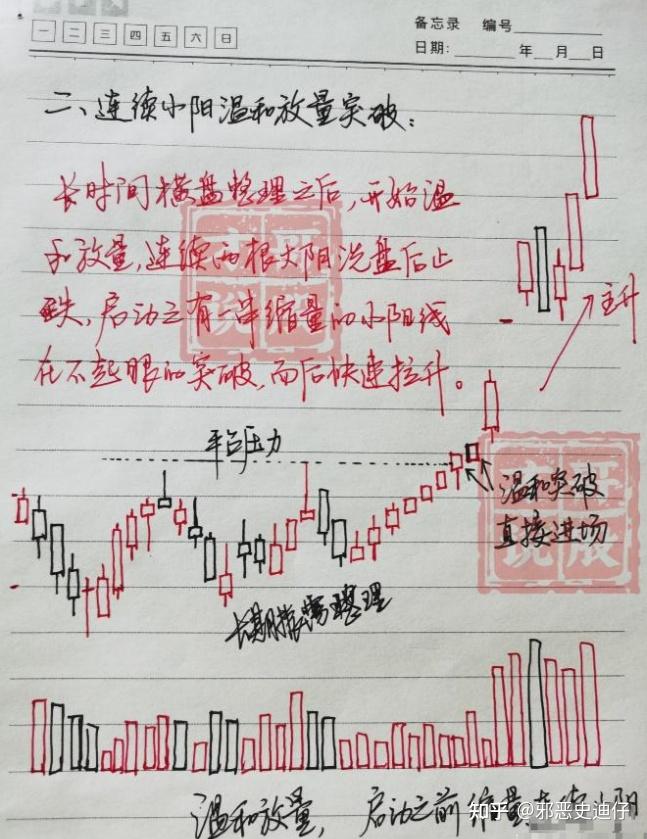 一 二 三 四 五 六 日
备忘录 编号
日期: 年 月 日
二、连续小阳温和放量突破:
长时间横盘整理之后,开始温
和放量,连续两根大阳洗盘后止
跌,启动之有一串缩量的小阳线
在不起眼的突破,而后快速拉升。
主升
平台压力
温和突破
直接进场
长期震荡整理
温和放量, 启动之前缩量连续小阳
知乎 @邪恶史迪仔